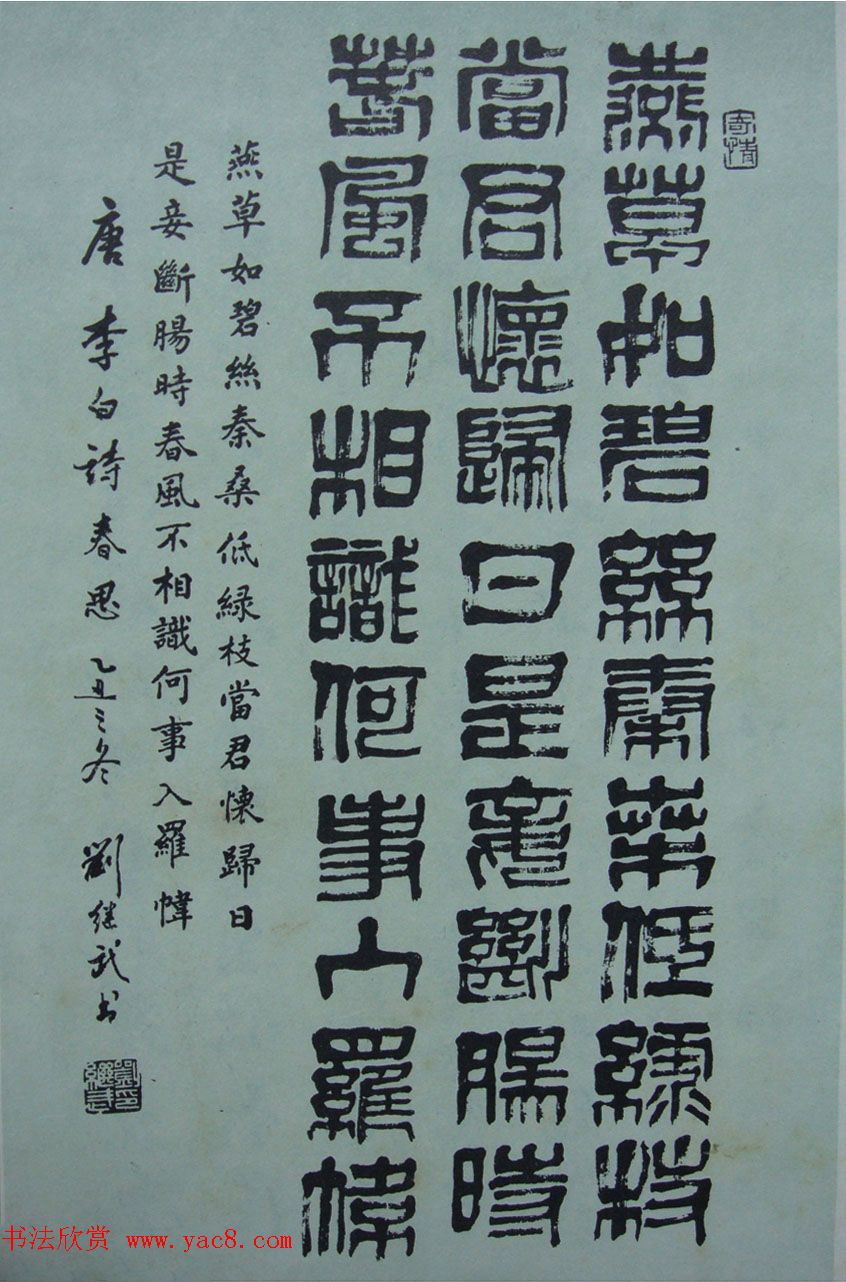 寄情
燕草如碧絲秦桑低綠枝
當君懷歸日是妾斷腸時
春風不相識何事入羅幃
燕草如碧絲秦桑低綠枝當君懷歸日
是妾斷腸時春風不相識何事入羅幃
唐李白詩春思乙丑之冬劉继武书
劉繼武印
书法欣赏 www.yac8.com